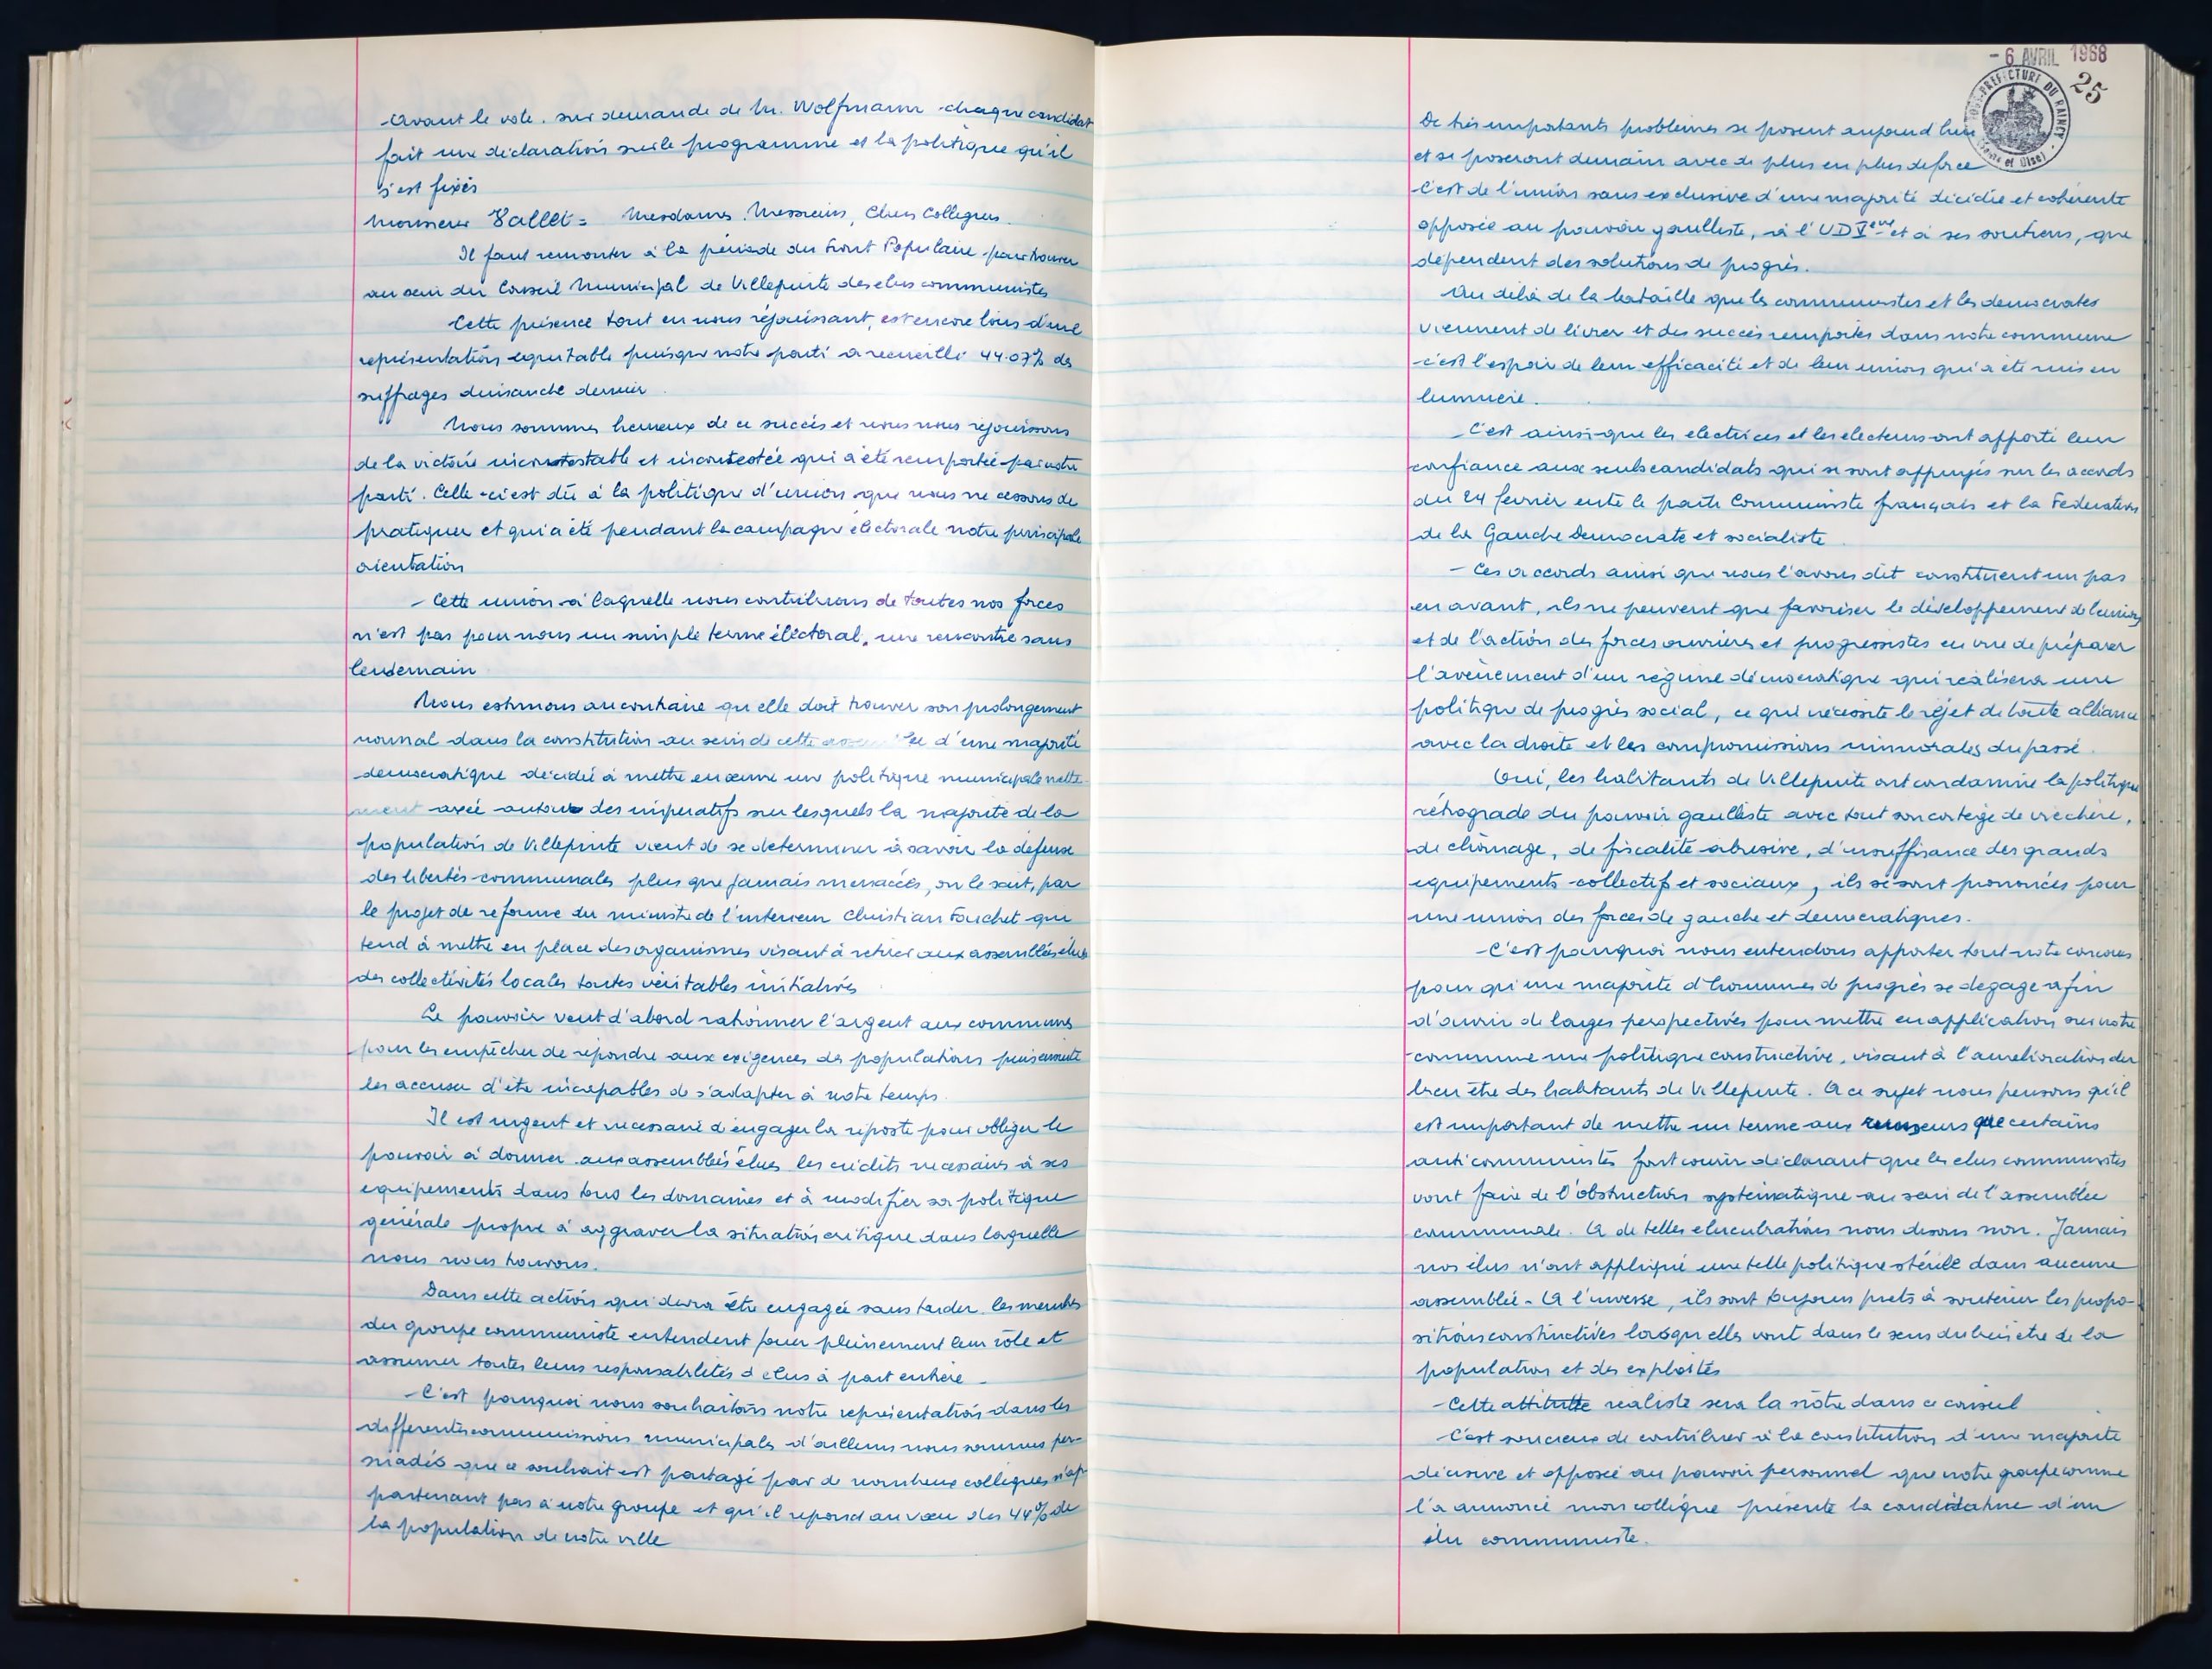 Avant le vote. sur demande de M. Wolfmann chaque candidat
fait une déclaration sur le programme et la politique qu'il
s'est fixés
Monsieur Vallet = Mesdames. Messieurs, Chers Collègues.
Il faut remonter à la période du Front Populaire pour trouver
au sein du Conseil Municipal de Villepinte des elus communistes
Cette présence tout en nous réjouissant, est encore loin d'une
représentation equitable puisque notre parti a recueilli 44.07% des
suffrages dimanche dernier.
Nous sommes heureux de ce succès et nous nous rejouissons
de la victoire incontestable et incontestée qui a été remportée par notre
parti. Celle-ci est dû à la politique d'union que nous ne cessons de
pratiquer et qui a été pendant la campagne électorale notre principale
orientation
- Cette union à laquelle nous contribuons de toutes nos forces
n'est pas pour nous un simple terme éléctoral, une rencontre sans
lendemain.
Nous estimons au contraire qu'elle doit trouver son prolongement
normal dans la constitution au sein de cette assemblée d'une majorité
democratique décidée à mettre en œuvre une politique municipale nette-
ment axée autour des imperatifs sur lesquels la majorité de la
population de Villepinte vient de se determiner à savoir la défense
des libertés communales plus que jamais menacées, on le sait, par
le projet de reforme du ministre de l'interieur Christian Fouchet qui
tend à mettre en place des organismes visant à retirer aux assemblées élues
des collectivités locales toutes véritables initiatives
Le pouvoir veut d'abord rationner l'argent aux communes
pour les empêcher de répondre aux exigences des populations puis ensuite
les accuser d'être incapables de s'adapter à notre temps.
Il est urgent et necessaire d'engager la riposte pour obliger le
pouvoir à donner aux assemblées élues les crédits necessaires à ses
equipements dans tous les domaines et à modifier sa politique
générale propre à aggraver la situation critique dans laquelle
nous nous trouvons.
Dans cette action qui devra être engagée sans tarder les membres
du groupe communiste entendent jouer pleinement leur rôle et
assumer toutes leurs responsabilités d'elus à part entière -
- C'est pourquoi nous souhaitons notre représentation dans les
differentes commissions municipales d'ailleurs nous sommes per-
suadés que ce souhait est partagé par de nombreux collègues n'ap-
partenant pas à notre groupe et qu'il repond au vœu des 44% de
la population de notre ville
- 6 AVRIL 1968
25
SOUS-PREFECTURE DU RAINCY
(Seine et Oise)
De très importants problèmes se posent aujourd'hui
et se poseront demain avec de plus en plus de force
C'est de l'union sans exclusive d'une majorité décidée et cohérente
opposée au pouvoir gaulliste, à l'UD Vème et à ses soutiens, que
dépendent des solutions de progrès.
Au délà de la bataille que les communistes et les democrates
viennent de livrer et des succès remportés dans notre commune
c'est l'espoir de leur efficacité et de leur union qui a été mis en
lumière.
C'est ainsi que les electrices et les electeurs ont apporté leur
confiance aux seuls candidats qui se sont appuyés sur les accords
du 24 fevrier entre le parti Communiste français et la Federation
de la Gauche Democrate et socialiste.
- Ces accords ainsi que nous l'avons dit constituent un pas
en avant, ils ne peuvent que favoriser le développement de l'union
et de l'action des forces ouvrières et progressistes en vue de préparer
l'avènement d'un régime démocratique qui réalisera une
politique de progrès social, ce qui nécessite le réjet de toute alliance
avec la droite et les compromissions immorales du passé.
Oui, les habitants de Villepinte ont condamné la politique
rétrograde du pouvoir gaulliste avec tout son cortège de vie chère,
de chômage, de fiscalité abusive, d'insuffisance des grands
equipements collectifs et sociaux, ils se sont prononcés pour
une union des forces de gauche et democratiques.
- C'est pourquoi nous entendons apporter tout notre concours
pour qu'une majorité d'hommes de progrès se dégage afin
d'ouvrir de larges perspectives pour mettre en application sur notre
commune une politique constructive, visant à l'amélioration du
bien être des habitants de Villepinte. A ce sujet nous pensons qu'il
est important de mettre un terme aux rumeurs que certains
anti communistes font courir déclarant que les elus communistes
vont faire de l'obstruction systématique au sein de l'assemblée
communale. A de telles elucubrations nous disons non. Jamais
nos élus n'ont appliqué une telle politique stérile dans aucune
assemblée - A l'inverse, ils sont toujours prets à soutenir les propo-
sitions constructives lorsqu'elles vont dans le sens du bien etre de la
population et des exploités
- Cette attitude réaliste sera la nôtre dans ce conseil
- C'est soucieux de contribuer à la constitution d'une majorité
décisive et opposée au pouvoir personnel que notre groupe comme
l'a annoncé mon collègue présente la candidature d'un
élu communiste.